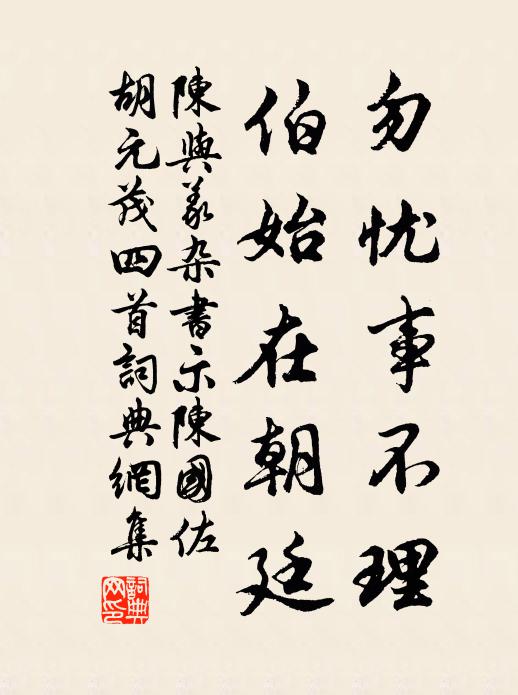 勿忧事不理
伯始在朝廷
陳與义杂書示陳國佐
胡元茂四首詞典網集
詞典网印